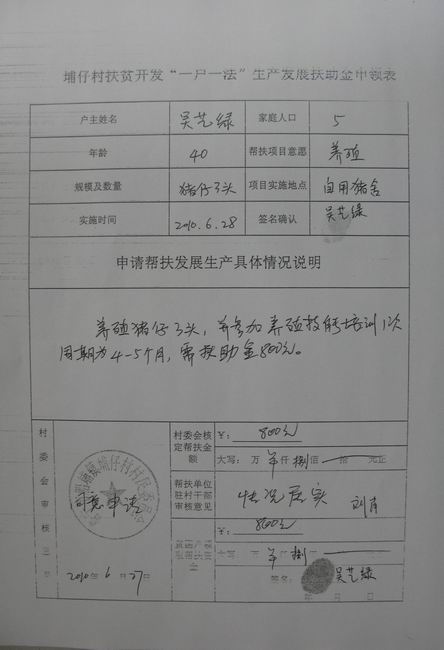 埔仔村扶贫开发“一户一法”生产发展扶助金申领表
户主姓名 吴艺绿 家庭人口 5
年龄 40 帮扶项目意愿 养殖
规模及数量 猪仔3头 项目实施地点 自用猪舍
实施时间 2010.6.28 签名确认 吴艺绿
申请帮扶发展生产具体情况说明
养殖猪仔3头，并参加养殖技能培训1次
周期为4-5个月，需扶助金800元。
村委会审核
同意申请
2010年6月27日
村委会核定帮扶金额
¥： 800元
大写： 万 仟 捌佰 拾 元正
帮扶单位驻村干部审核意见
情况属实 刘肖
¥： 800元
大写： 万 仟 捌
签名： 吴艺绿
年 月 日